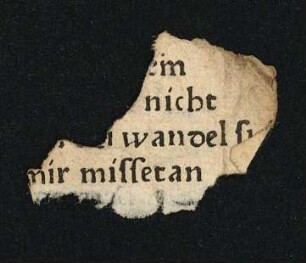 ein
nicht
wandel si
mir missetan